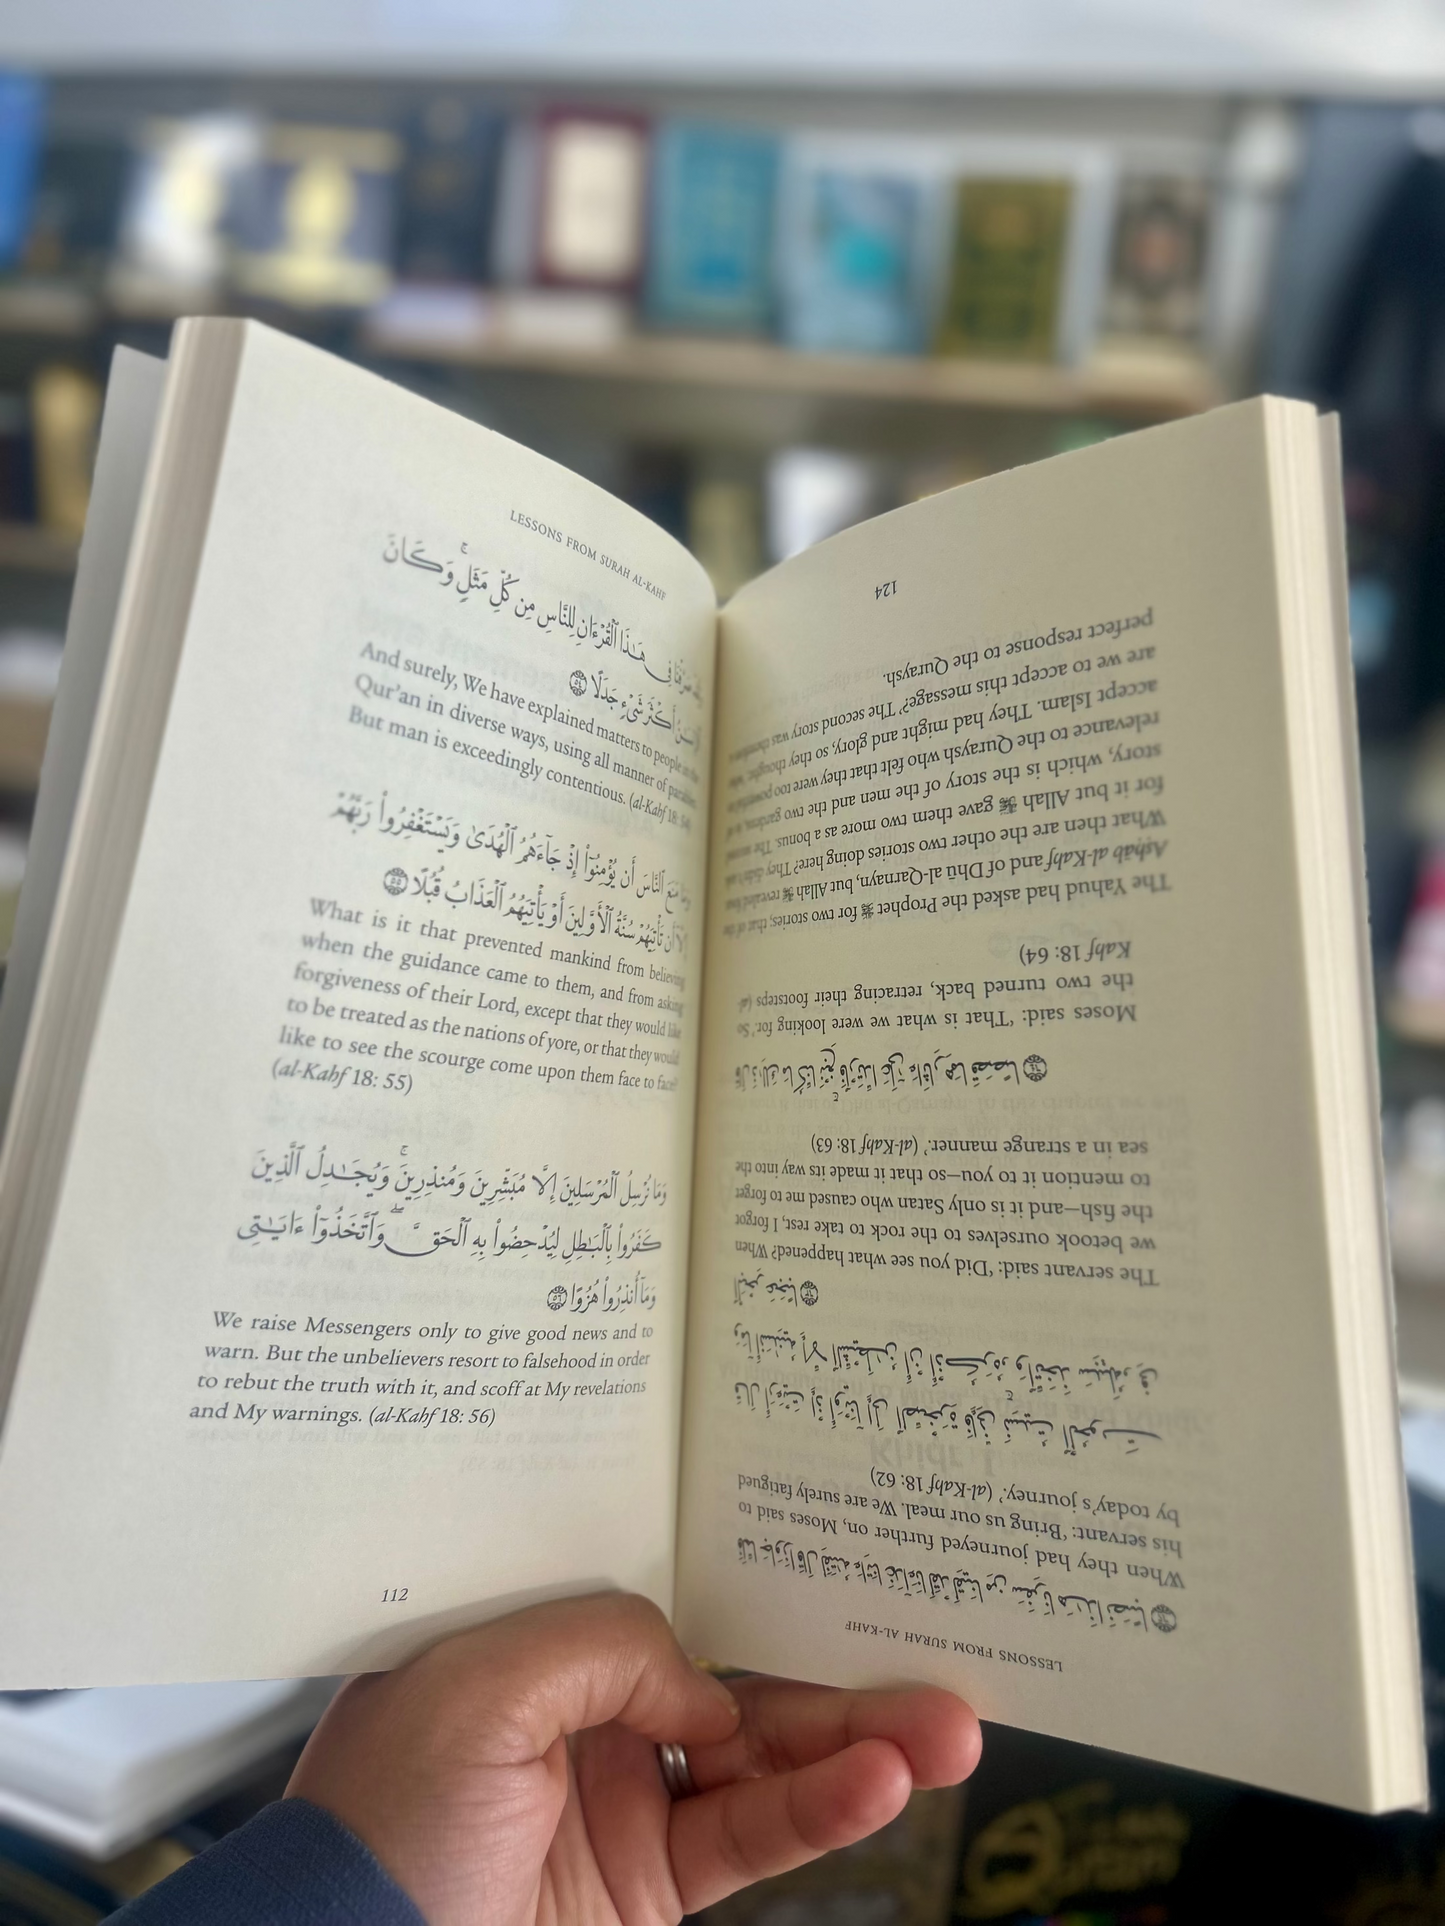 LESSONS FROM SURAH AL-KAHF
وَلَقَدْ صَرَّفْنَا فِى هَـٰذَا ٱلْقُرْءَانِ لِلنَّاسِ مِن كُلِّ مَثَلٍ ۚ وَكَانَ
ٱلْإِنسَـٰنُ أَكْثَرَ شَىْءٍ جَدَلًا ٥٤
And surely, We have explained matters to people in the
Qur'an in diverse ways, using all manner of parables.
But man is exceedingly contentious. (al-Kahf 18: 54)
وَمَا مَنَعَ ٱلنَّاسَ أَن يُؤْمِنُوٓا۟ إِذْ جَآءَهُمُ ٱلْهُدَىٰ وَيَسْتَغْفِرُوا۟ رَبَّهُمْ
إِلَّآ أَن تَأْتِيَهُمْ سُنَّةُ ٱلْأَوَّلِينَ أَوْ يَأْتِيَهُمُ ٱلْعَذَابُ قُبُلًا ٥٥
What is it that prevented mankind from believing
when the guidance came to them, and from asking
forgiveness of their Lord, except that they would like
to be treated as the nations of yore, or that they would
like to see the scourge come upon them face to face?
(al-Kahf 18: 55)
وَمَا نُرْسِلُ ٱلْمُرْسَلِينَ إِلَّا مُبَشِّرِينَ وَمُنذِرِينَ ۚ وَيُجَـٰدِلُ ٱلَّذِينَ
كَفَرُوا۟ بِٱلْبَـٰطِلِ لِيُدْحِضُوا۟ بِهِ ٱلْحَقَّ ۖ وَٱتَّخَذُوٓا۟ ءَايَـٰتِى
وَمَآ أُنذِرُوا۟ هُزُوًا ٥٦
We raise Messengers only to give good news and to
warn. But the unbelievers resort to falsehood in order
to rebut the truth with it, and scoff at My revelations
and My warnings. (al-Kahf 18: 56)
112
LESSONS FROM SURAH AL-KAHF
فَلَمَّا جَاوَزَا قَالَ لِفَتَىٰهُ ءَاتِنَا غَدَآءَنَا لَقَدْ لَقِينَا مِن سَفَرِنَا هَـٰذَا نَصَبًا ٦٢
When they had journeyed further on, Moses said to
his servant: 'Bring us our meal. We are surely fatigued
by today's journey.' (al-Kahf 18: 62)
قَالَ أَرَءَيْتَ إِذْ أَوَيْنَآ إِلَى ٱلصَّخْرَةِ فَإِنِّى نَسِيتُ ٱلْحُوتَ
وَمَآ أَنسَىٰنِيهُ إِلَّا ٱلشَّيْطَـٰنُ أَنْ أَذْكُرَهُۥ ۚ وَٱتَّخَذَ سَبِيلَهُۥ فِى
ٱلْبَحْرِ عَجَبًا ٦٣
The servant said: 'Did you see what happened? When
we betook ourselves to the rock to take rest, I forgot
the fish—and it is only Satan who caused me to forget
to mention it to you—so that it made its way into the
sea in a strange manner.' (al-Kahf 18: 63)
قَالَ ذَٰلِكَ مَا كُنَّا نَبْغِ ۚ فَٱرْتَدَّا عَلَىٰٓ ءَاثَارِهِمَا قَصَصًا ٦٤
Moses said: 'That is what we were looking for.' So
the two turned back, retracing their footsteps (al-
Kahf 18: 64)
The Yahud had asked the Prophet ﷺ for two stories; that of the
Aṣḥāb al-Kahf and of Dhū al-Qarnayn, but Allah ﷻ revealed four.
What then are the other two stories doing here? They didn't ask
for it but Allah ﷻ gave them two more as a bonus. The second
story, which is the story of the men and the two gardens, is of
relevance to the Quraysh who felt that they were too powerful to
accept Islam. They had might and glory, so they thought, 'why
are we to accept this message?' The second story was therefore
perfect response to the Quraysh.
124